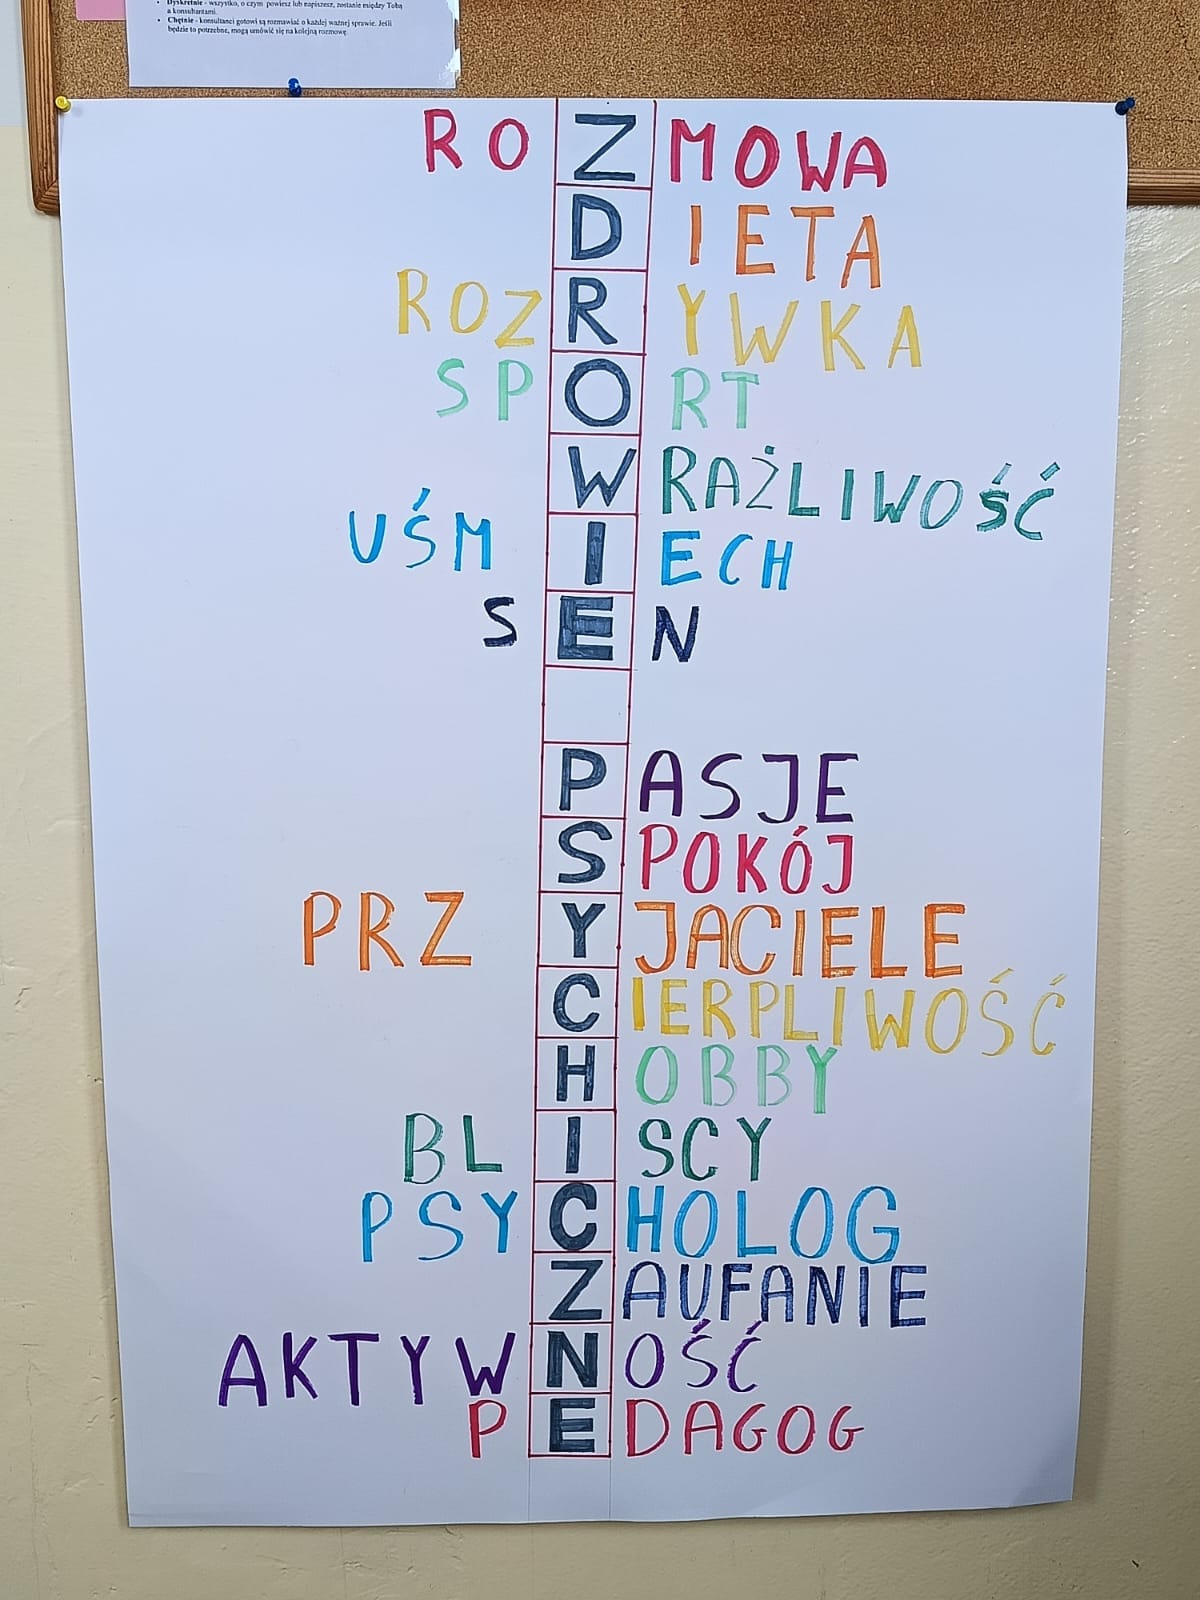 • Dyskretnie - wszystko, o czym powiesz lub napiszesz, zostanie między Tobą
a konsultantami.
• Chętnie - konsultanci gotowi są rozmawiać o każdej ważnej sprawie. Jeśli
będzie to potrzebne, mogą umówić się na kolejną rozmowę.
ROZMOWA
DIETA
ROZRYWKA
SPORT
WRAŻLIWOŚĆ
UŚMIECH
SEN
PASJE
SPOKÓJ
PRZYJACIELE
CIERPLIWOŚĆ
HOBBY
BLISCY
PSYCHOLOG
ZAUFANIE
AKTYWNOŚĆ
PEDAGOG